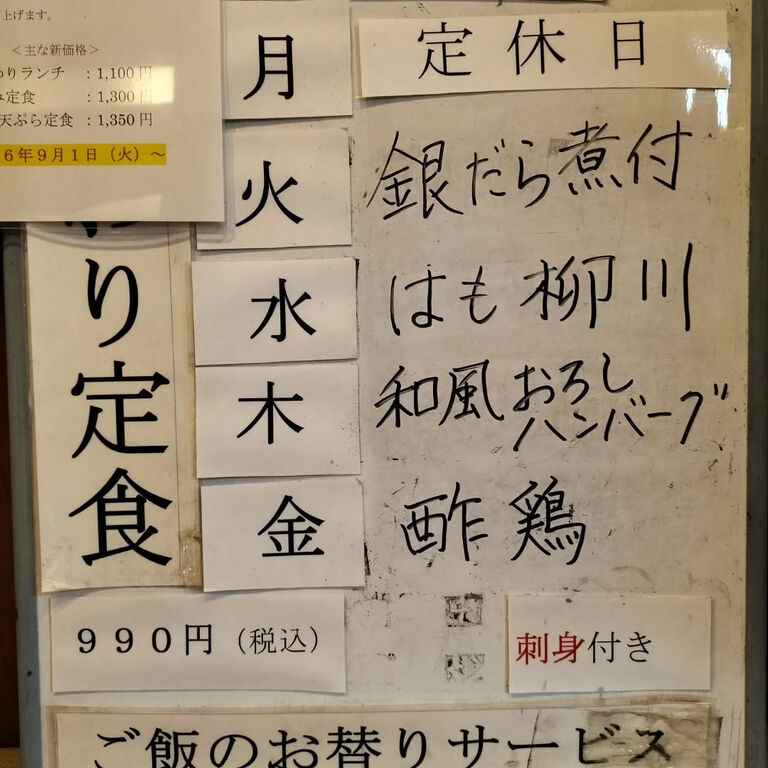 上げます。
＜主な新価格＞
わりランチ ：1,100円
み定食 ：1,300円
天ぷら定食 ：1,350円
6年9月1日（火）～
わり定食
月 定休日
火 銀だら煮付
水 はも柳川
木 和風おろし
ハンバーグ
金 酢鶏
990円（税込）
刺身付き
ご飯のお替りサービス